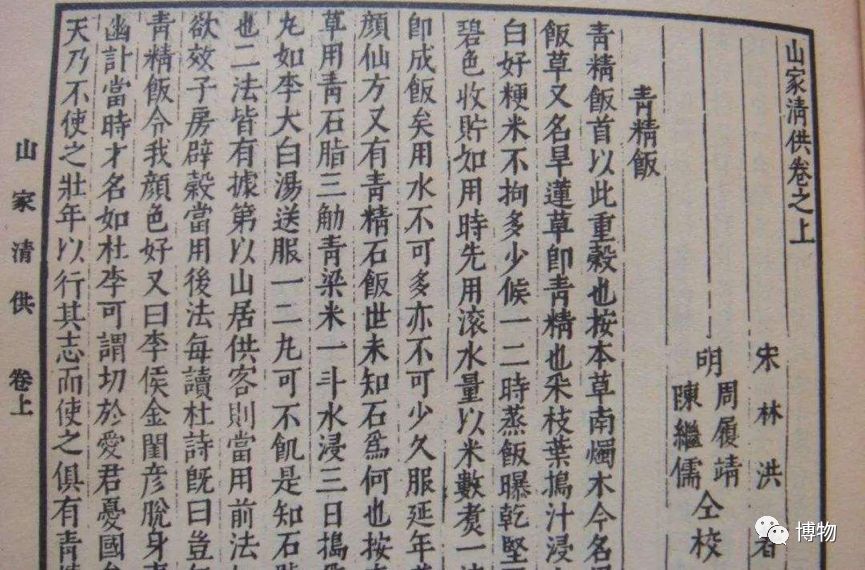 山家清供卷之上
宋林洪
明
周履靖
陳繼儒
仝校
青精飯
青精飯首以此重穀也按本草南燭木今名
飯草又名旱蓮草卽青精也采枝葉搗汁浸
白好粳米不拘多少候一二時蒸飯曝乾堅
碧色收貯如用時先用滚水量以米數煑一
卽成飯矣用水不可多亦不可少久服延年
顔仙方又有青精石飯世未知石爲何也按
草用青石脂三觔青梁米一斗水浸三日搗
丸如李大白湯送服一二丸可不飢是知石
也二法皆有據第以山居供客則當用前法
欲效子房辟穀當用後法每讀杜詩旣曰豈
青精飯令我顔色好又曰李侯金閨彦脫身
幽計當時才名如杜李可謂切於愛君憂國
天乃不使之壯年以行其志而使之俱有青
山家清供 卷上
博物